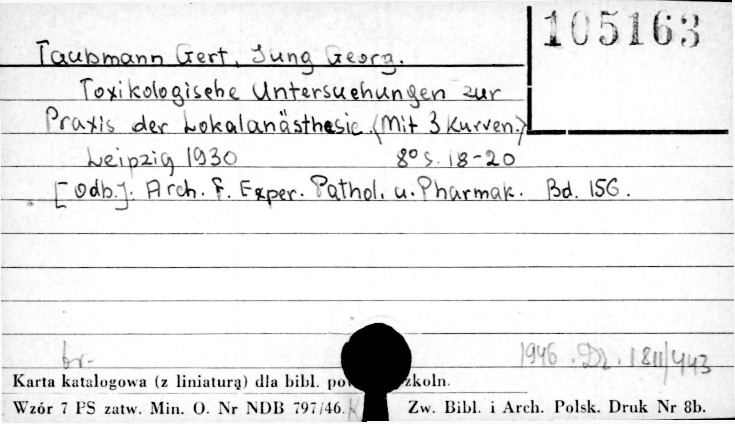 105163
Taubmann Gert, Jung Georg.
Toxikologische Untersuchungen zur
Praxis der Lokalanästhesie. (Mit 3 Kurven.)
Leipzig 1930 8° s. 18-20
[Odb.]. Arch. f. Exper. Pathol. u. Pharmak. Bd. 156.
br. 1946. Dz. 1811/443
Karta katalogowa (z liniaturą) dla bibl. szkoln.
Wzór 7 PS zatw. Min. O. Nr NDB 797/46. Zw. Bibl. i Arch. Polsk. Druk Nr 8b.